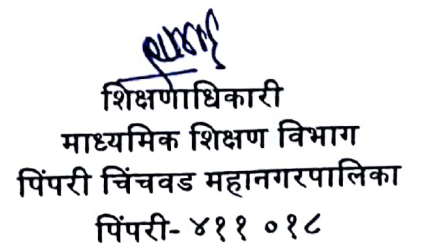 शिक्षणाधिकारी
माध्यमिक शिक्षण विभाग
पिंपरी चिंचवड महानगरपालिका
पिंपरी- ४११ ०१८